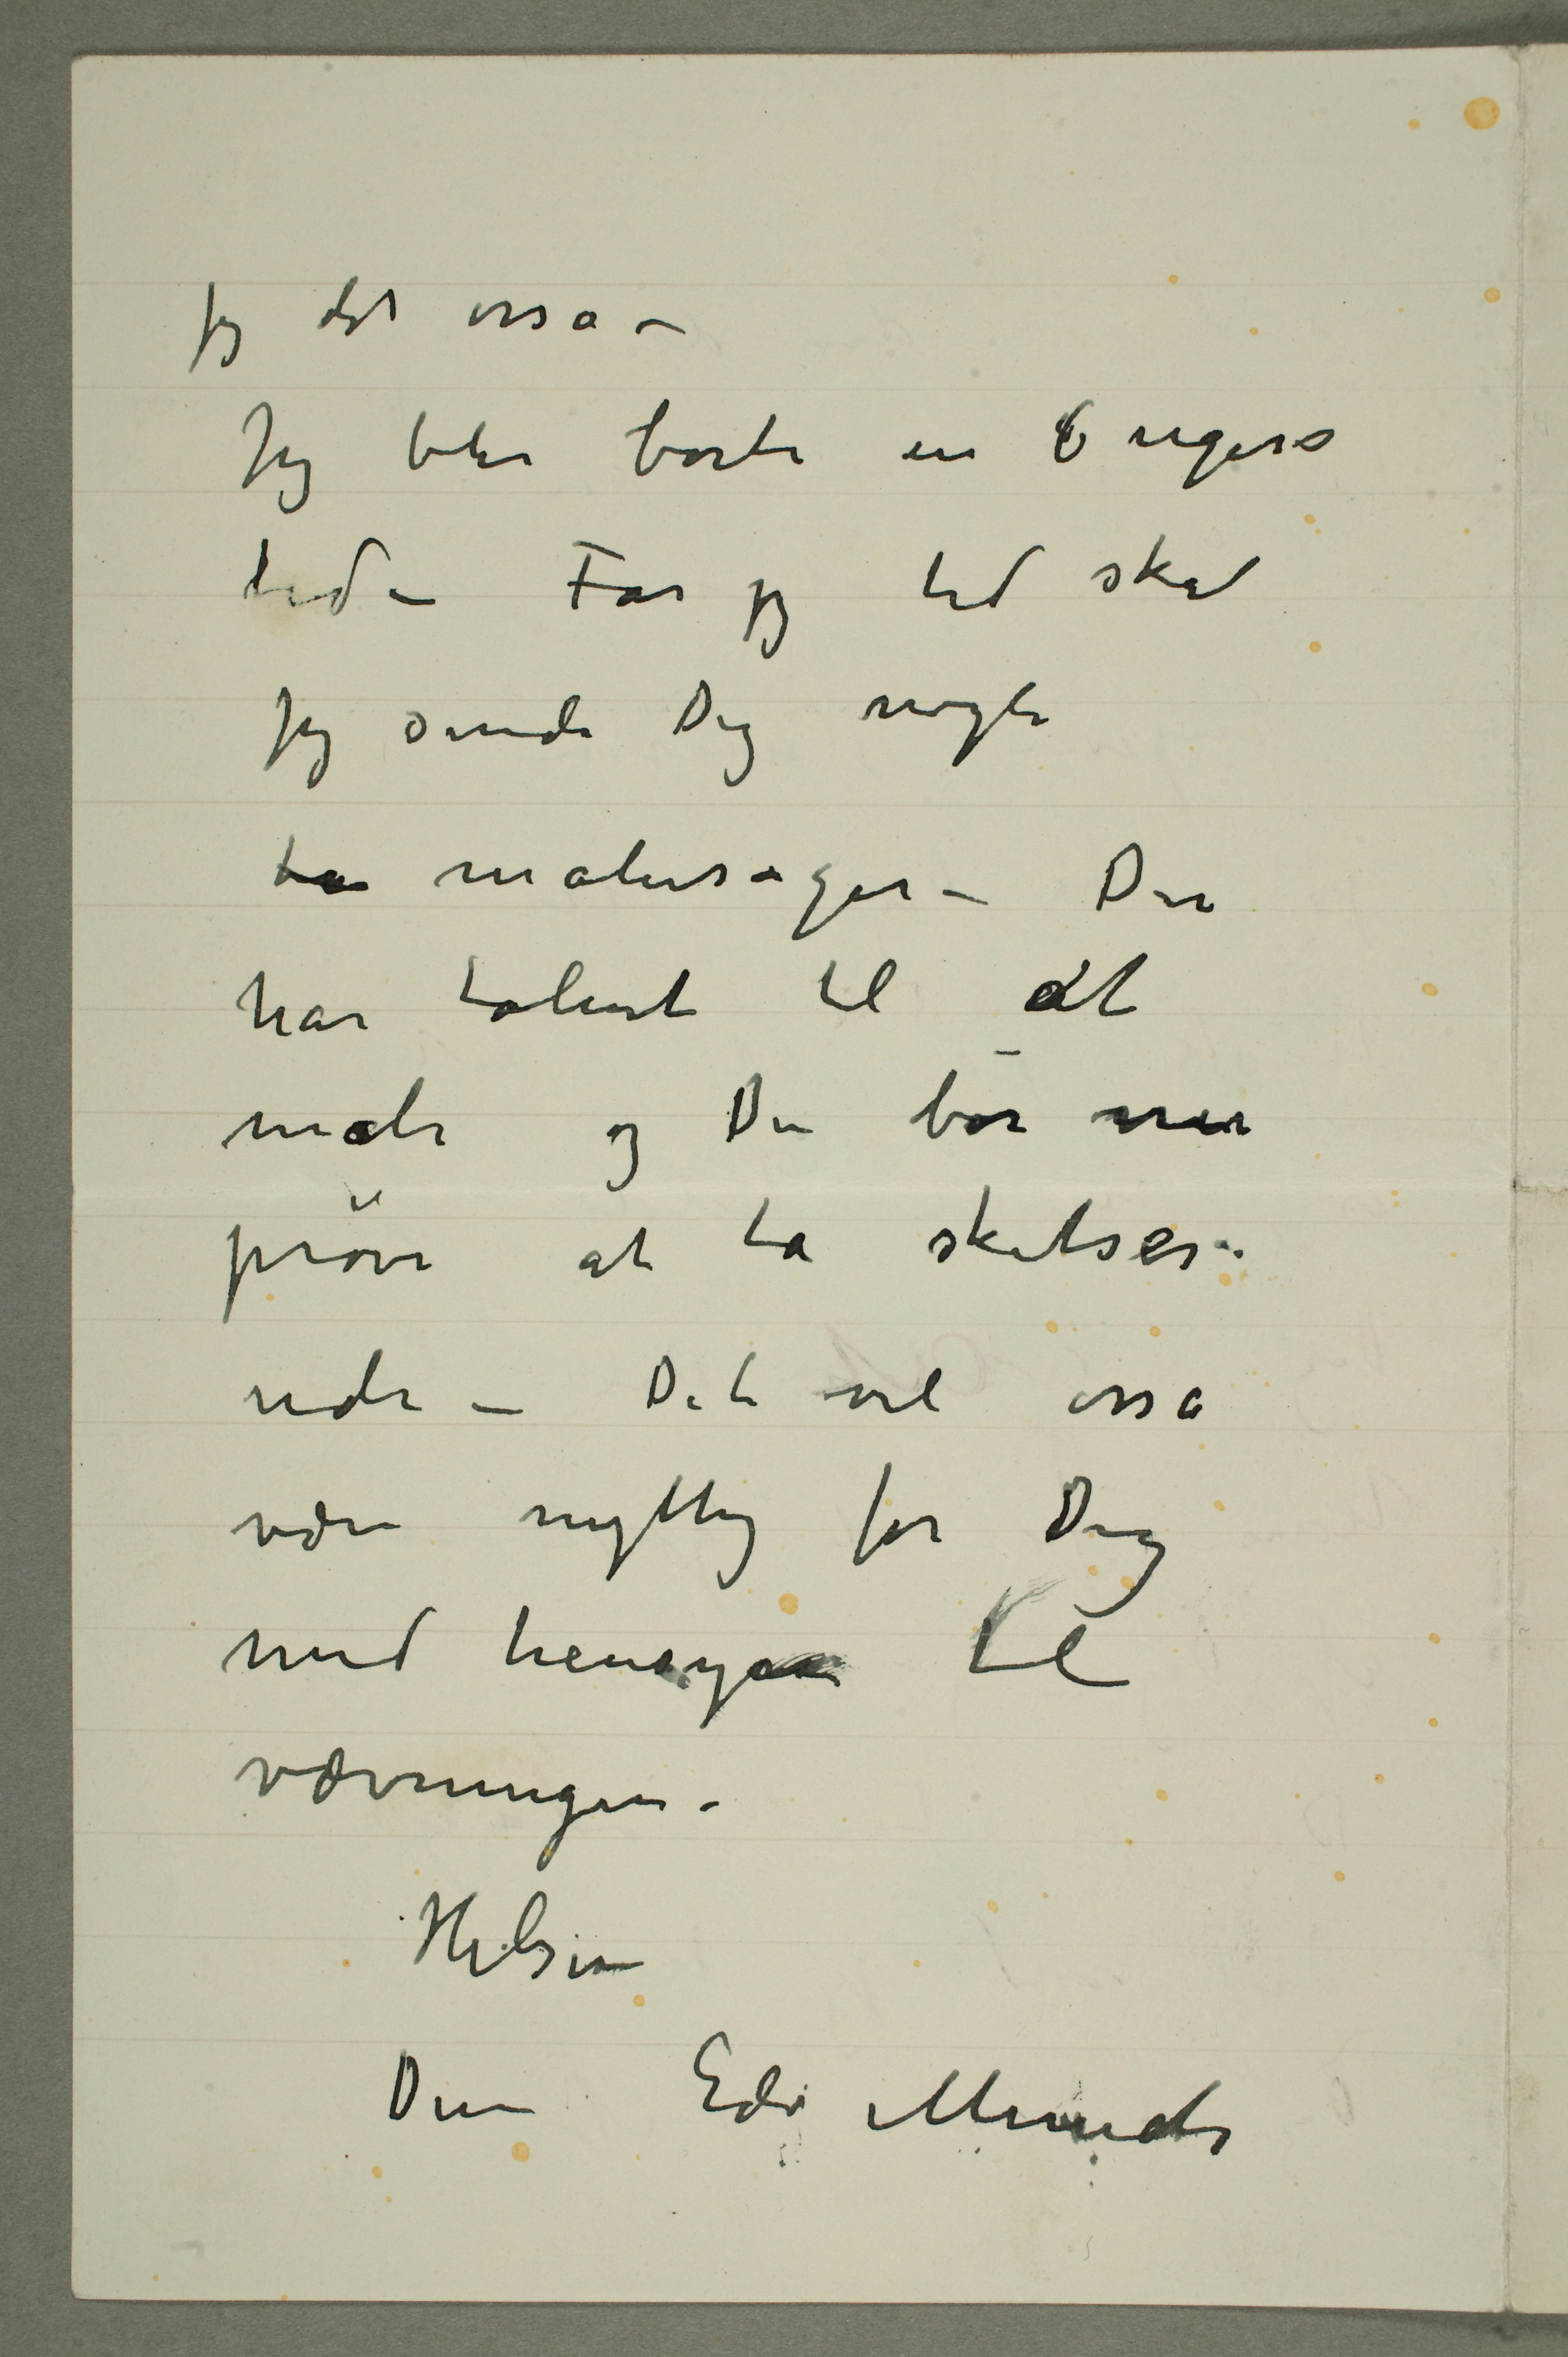 jeg det osså –
Jeg blir borte en 6 ugers
tid – Får jeg tid skal
jeg sende Dig nogle
malersager – Du
har talent til at
male og Du bør
prøve at ta skitser
ude – Det vil osså
være nyttig for Dig
med hensyn til
vævningen –
Hilsen
Din Edv Munch